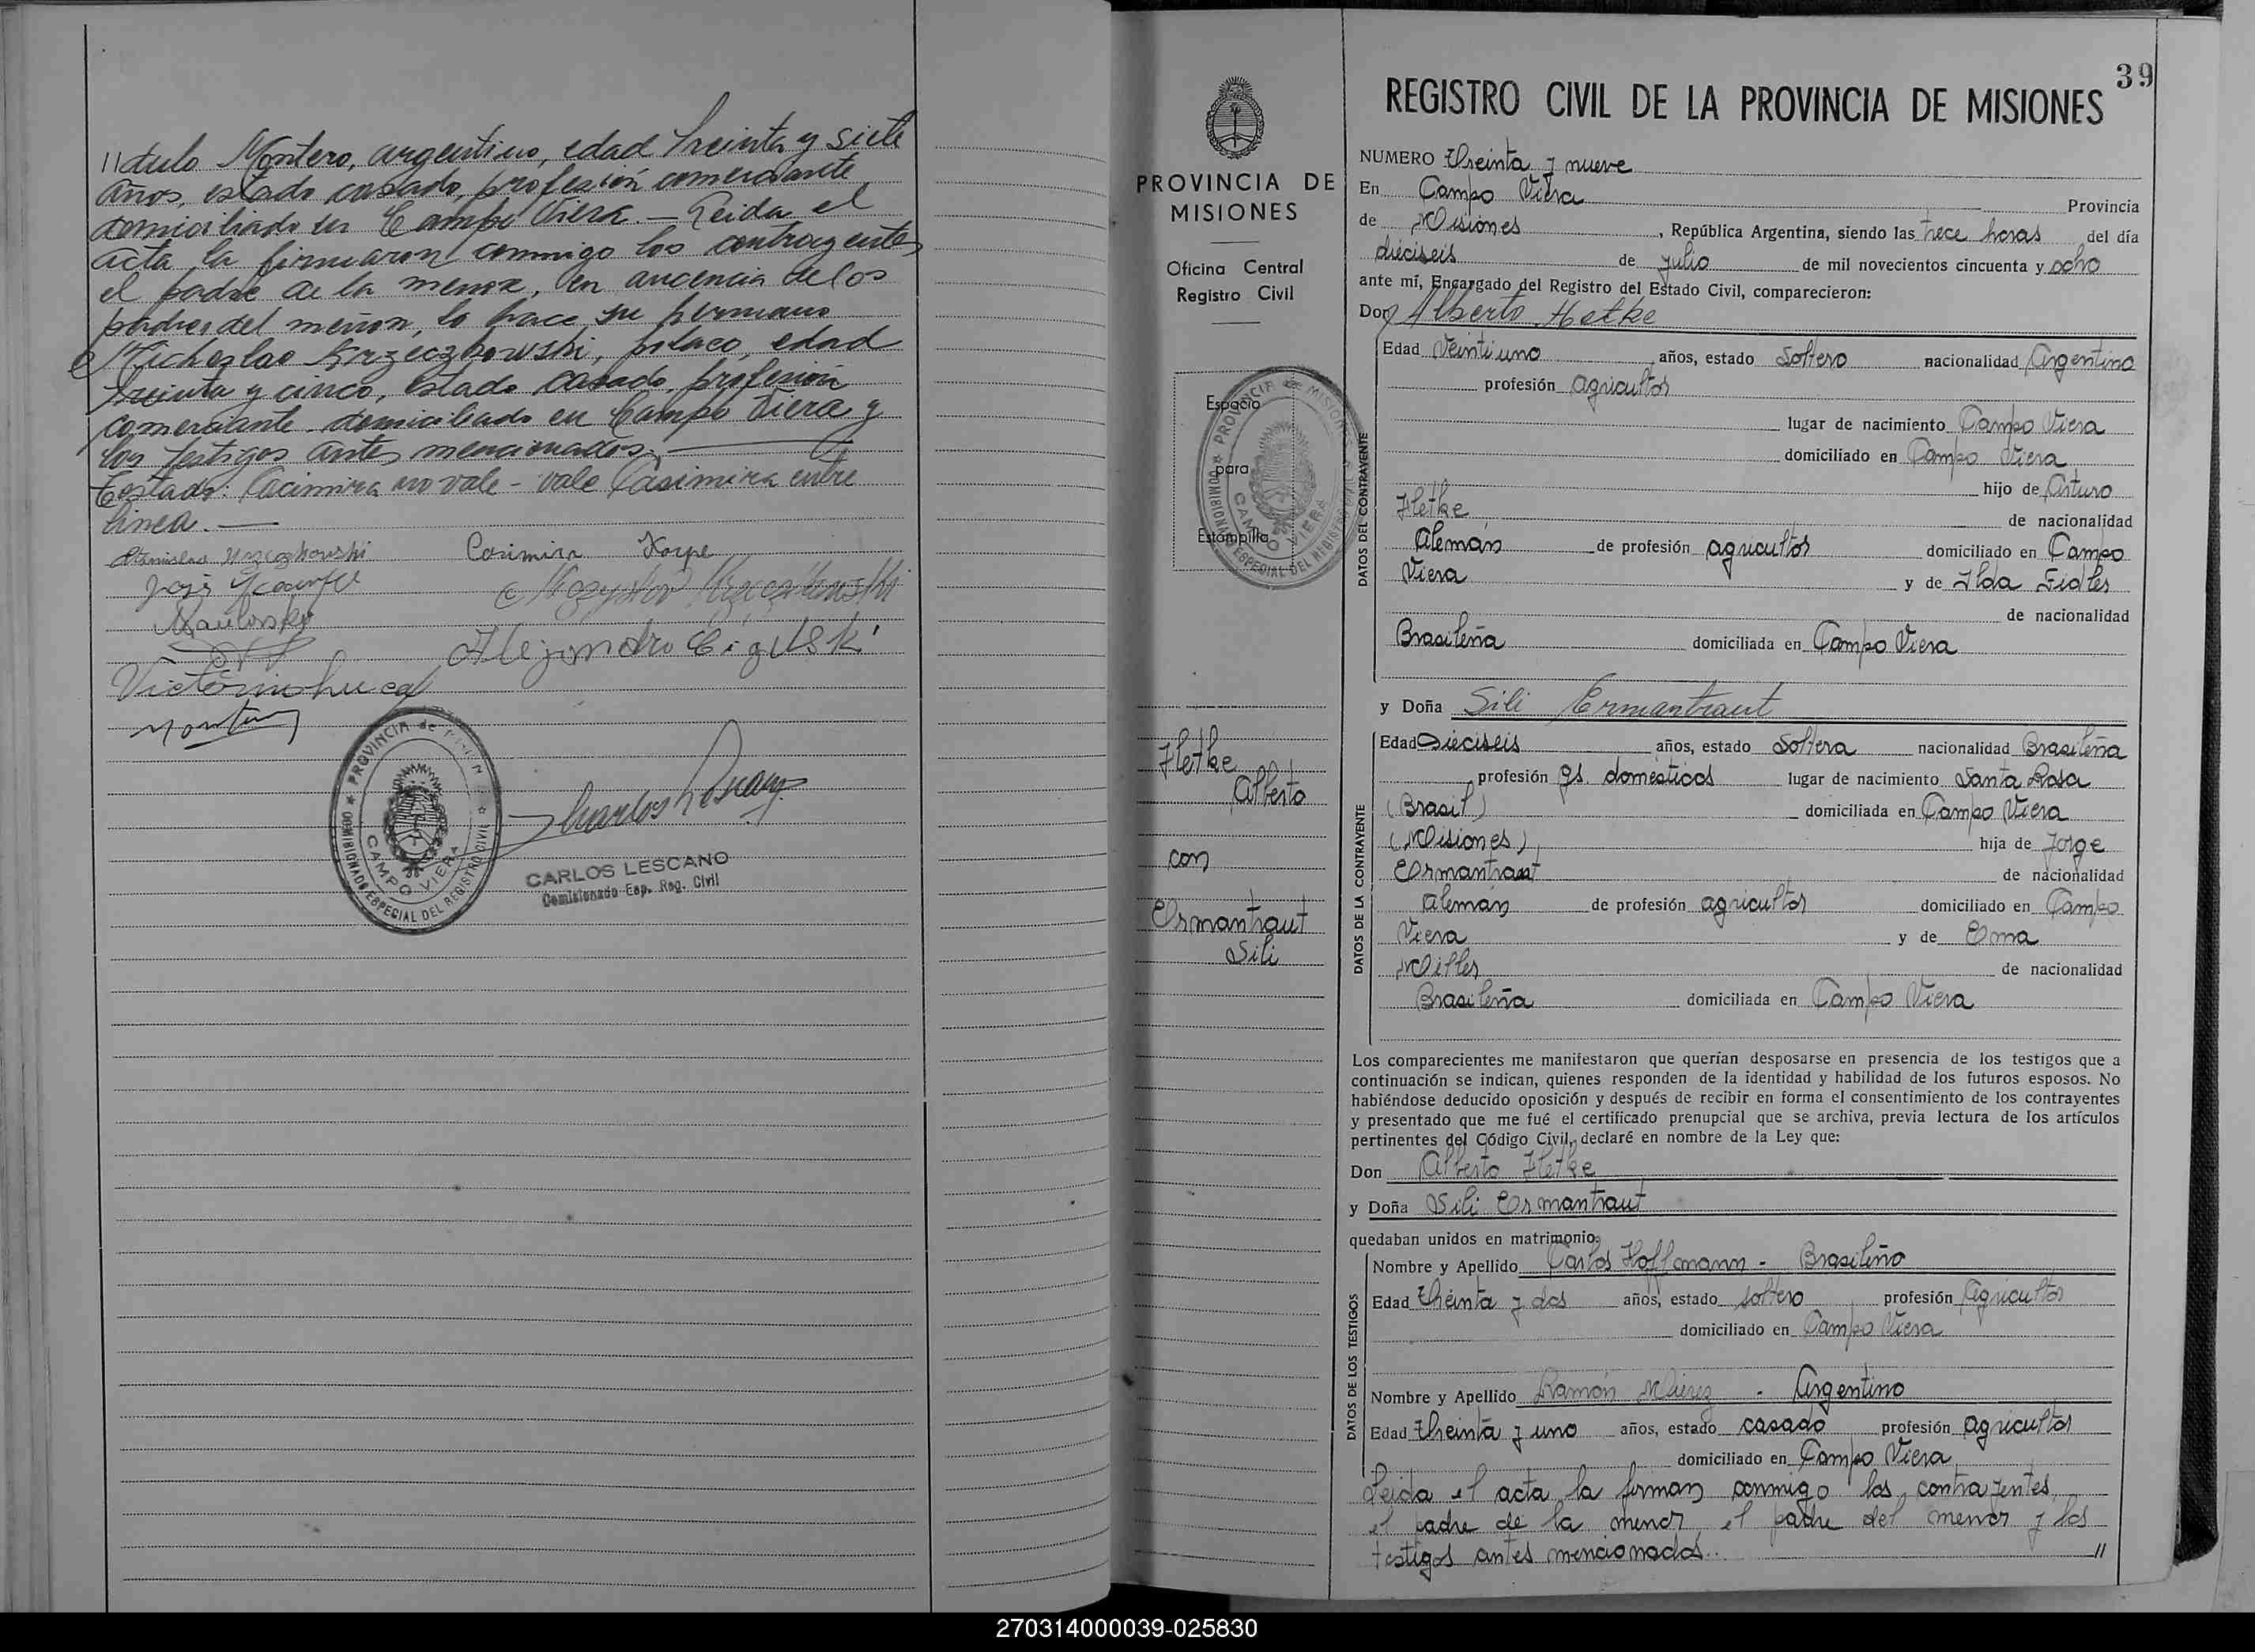 //dulo Montero, argentino, edad treinta y siete
años, estado casado, profesión comerciante
domiciliado en Campo Viera. — Leida el
acta la firmaron conmigo los contrayentes
el padre de la menor, en aucencia de los
padres del menor, lo hace su hermano
Miecheslao Krzeczkowski, polaco, edad
treinta y cinco, estado casado, profesión
comerciante domiciliado en Campo Viera y
los testigos antes mencionados. —
Testado: Cacimira no vale - vale Casimira entre
linea. —
Casimira
Alejandro
CARLOS LESCANO
Comisionado Esp. Reg. Civil
PROVINCIA de MISIONES
COMISIONADO ESPECIAL DEL REGISTRO CIVIL
CAMPO VIERA
39
PROVINCIA DE
MISIONES
Oficina Central
Registro Civil
Espacio
para
Estampilla
PROVINCIA de MISIONES
COMISIONADO ESPECIAL DEL REGISTRO CIVIL
CAMPO VIERA
Hetke
Alberto
con
Ermantraut
Sili
REGISTRO CIVIL DE LA PROVINCIA DE MISIONES
NUMERO treinta y nueve
En Campo Viera Provincia
de Misiones, República Argentina, siendo las trece horas del día
dieciseis de julio de mil novecientos cincuenta y ocho
ante mí, Encargado del Registro del Estado Civil, comparecieron:
Don Alberto Hetke
DATOS DEL CONTRAYENTE
Edad Veintiuno años, estado Soltero nacionalidad Argentino
profesión agricultor
lugar de nacimiento Campo Viera
domiciliado en Campo Viera
hijo de Arturo
Hetke de nacionalidad
Alemán de profesión agricultor domiciliado en Campo
Viera y de Ilda Fidler
de nacionalidad
Brasileña domiciliada en Campo Viera
y Doña Sili Ermantraut
DATOS DE LA CONTRAYENTE
Edad Dieciseis años, estado Soltera nacionalidad Brasileña
profesión qs. domésticos lugar de nacimiento Santa Rosa
(Brasil) domiciliada en Campo Viera
(Misiones) hija de Jorge
Ermantraut de nacionalidad
Alemán de profesión agricultor domiciliado en Campo
Viera y de Ema
Miller de nacionalidad
Brasileña domiciliada en Campo Viera
Los comparecientes me manifestaron que querían desposarse en presencia de los testigos que a
continuación se indican, quienes responden de la identidad y habilidad de los futuros esposos. No
habiéndose deducido oposición y después de recibir en forma el consentimiento de los contrayentes
y presentado que me fué el certificado prenupcial que se archiva, previa lectura de los artículos
pertinentes del Código Civil, declaré en nombre de la Ley que:
Don Alberto Hetke
y Doña Sili Ermantraut
quedaban unidos en matrimonio.
DATOS DE LOS TESTIGOS
Nombre y Apellido Carlos Hoffmann - Brasileño
Edad treinta y dos años, estado soltero profesión Agricultor
domiciliado en Campo Viera
Nombre y Apellido Ramón - Argentino
Edad treinta y uno años, estado casado profesión agricultor
domiciliado en Campo Viera
Leida el acta la firman conmigo los contrayentes,
el padre de la menor, el padre del menor y los
testigos antes mencionados.. //
270314000039-025830